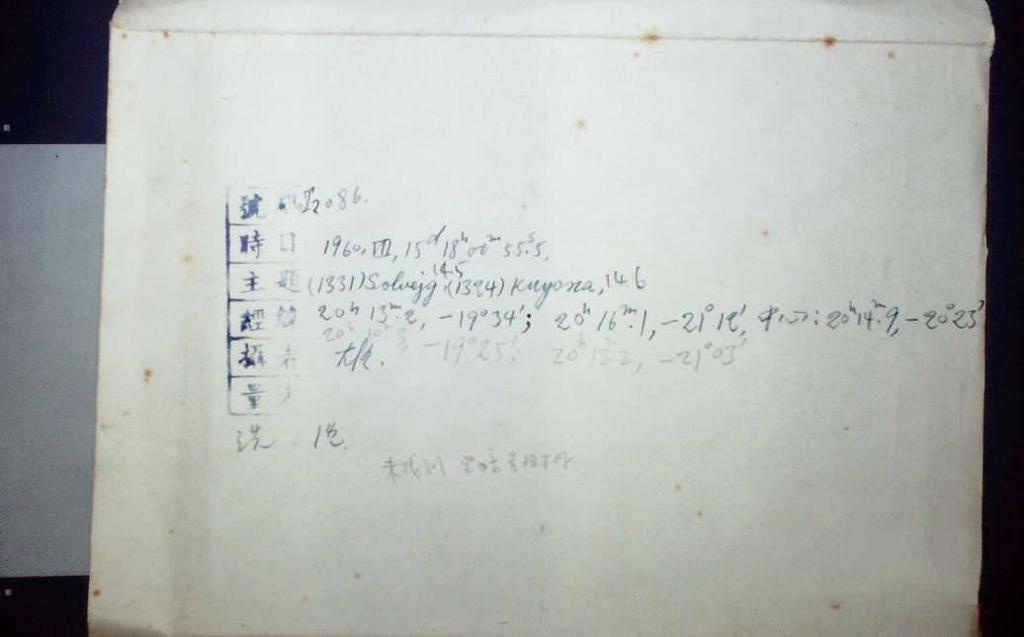 號 I2086.
時日 1960, VII, 15ᵈ 18ʰ 00ᵐ 55ˢ.5,
主題 (1331) Solvejg 14.5, (1324) Knysna, 14.6
經緯 20ʰ 13ᵐ.2, -19°34'; 20ʰ 16ᵐ.1, -21°12', 中心: 20ʰ 14ᵐ.9, -20°23'
-19°25'; 20ʰ 13ᵐ.2, -21°03'
攝者
量
洗
未找到